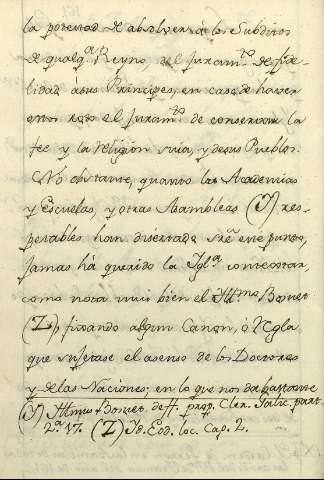 la potestad de absolver á los Subditos
de qualq.ª Reyno del Juram.to de fide-
lidad á sus Principes, en caso de haver
estos roto el Juram.to de conservar la
fee y la religion suia, y de sus Pueblos.
No obstante, quanto las Academias
y Escuelas, y otras Asambleas (Y) res-
petables han disertado sre este punto,
Jamas há querido la Igl.ª contestar,
como nota mui bien el Ill.mo Bosuet
(Z), fixando algun Canon, ó Regla
que sujetase el asenso de los Doctores
y de las Naciones; en lo que nos da bastante
(Y) Ill.mus Bosuet. def. prop. Cler. Galic. part.
2.ª 17. (Z) Id. Eod. loc. Cap. 2.